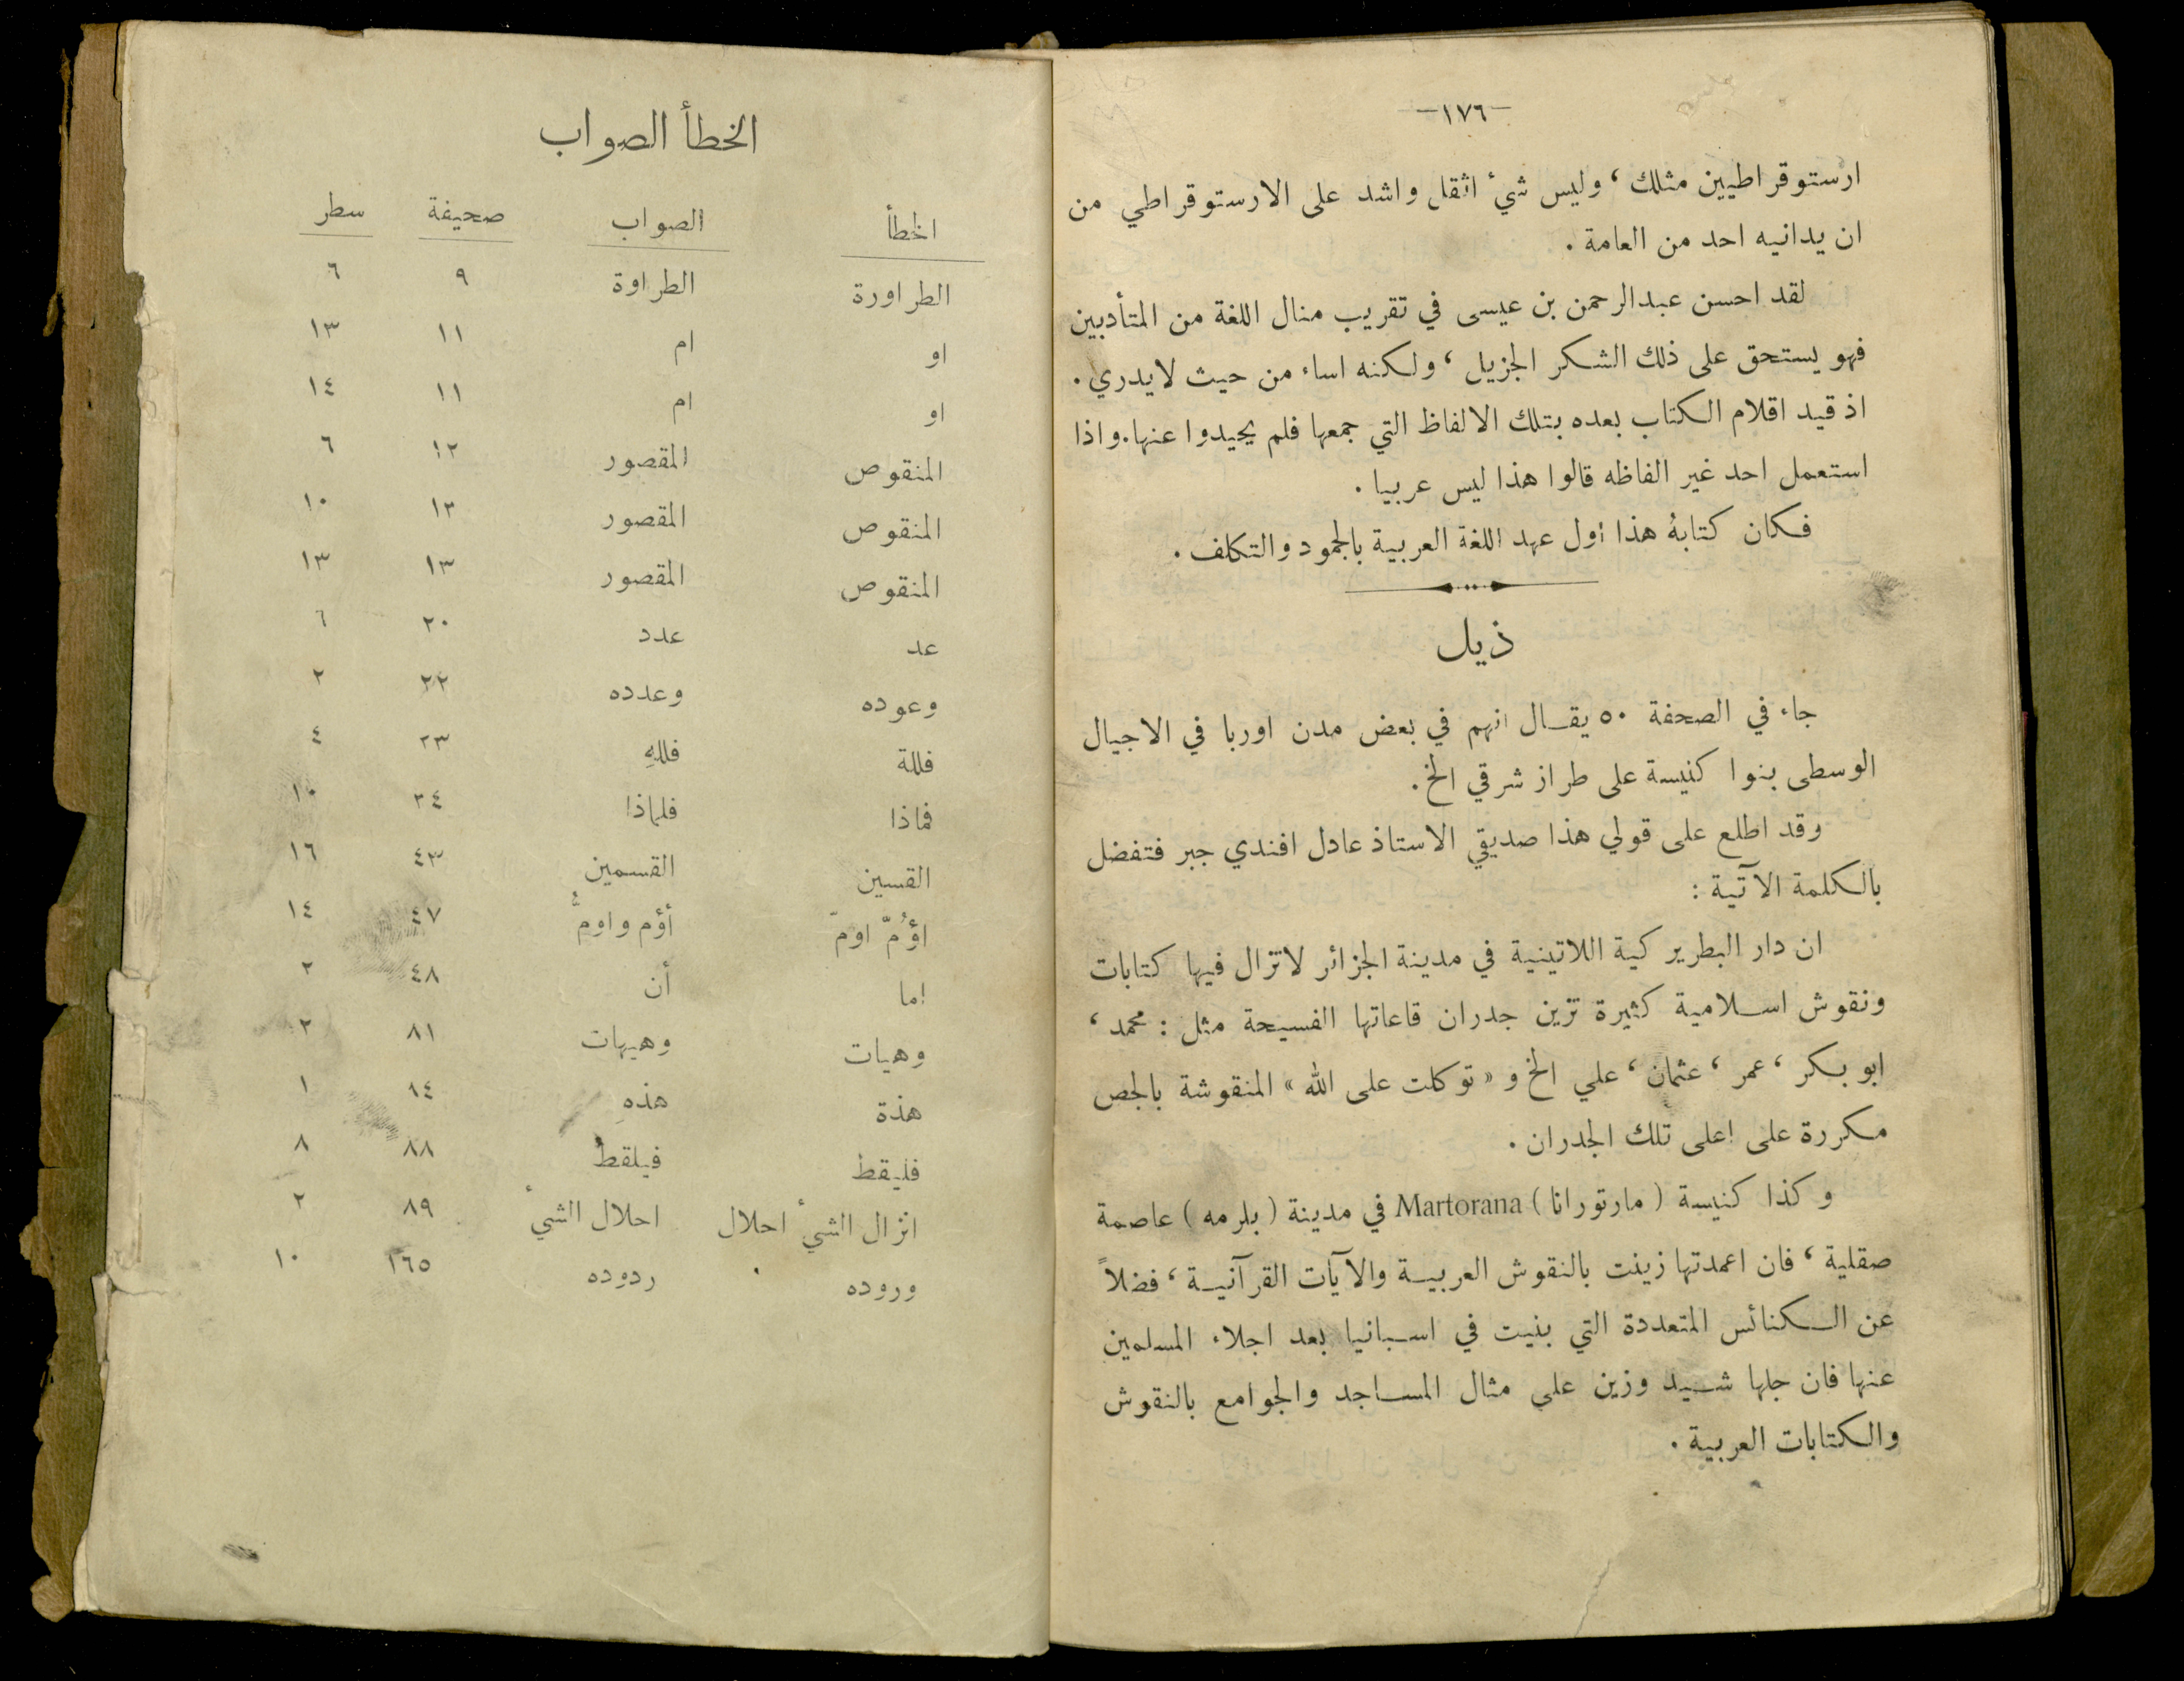 —١٧٦—
ارستوقراطيين مثلك ، وليس شئ اثقل واشد على الارستوقراطي من
ان يدانيه احد من العامة .
لقد احسن عبدالرحمن بن عيسى في تقريب منال اللغة من المتأدبين
فهو يستحق على ذلك الشكر الجزيل ، ولكنه اساء من حيث لايدري .
اذ قيد اقلام الكتاب بعده بتلك الالفاظ التي جمعها فلم يحيدوا عنها . واذا
استعمل احد غير الفاظه قالوا هذا ليس عربيا .
فكان كتابهُ هذا اول عهد اللغة العربية بالجمود والتكلف .
ذيل
جاء في الصحفة ٥٠ يقال انهم في بعض مدن اوربا في الاجيال
الوسطى بنوا كنيسة على طراز شرقي الخ .
وقد اطلع على قولي هذا صديقي الاستاذ عادل افندي جبر فتفضل
بالكلمة الآتية :
ان دار البطريركية اللاتينية في مدينة الجزائر لاتزال فيها كتابات
ونقوش اسلامية كثيرة تزين جدران قاعاتها الفسيحة مثل : محمد ،
ابو بكر ، عمر ، عثمان ، علي الخ و « توكلت على الله » المنقوشة بالجص
مكررة على اعلى تلك الجدران .
وكذا كنيسة ( مارتورانا ) Martorana في مدينة ( بلرمه ) عاصمة
صقلية ، فان اعمدتها زينت بالنقوش العربية والآيات القرآنية ، فضلاً
عن الكنائس المتعددة التي بنيت في اسبانيا بعد اجلاء المسلمين
عنها فان جلها شيد وزين على مثال المساجد والجوامع بالنقوش
والكتابات العربية .
الخطأ الصواب
الخطأ الصواب صحيفة سطر
الطراورة الطراوة ٩ ٦
او ام ١١ ١٣
او ام ١١ ١٤
المنقوص المقصور ١٢ ٦
المنقوص المقصور ١٣ ١٠
المنقوص المقصور ١٣ ١٣
عد عدد ٢٠ ٦
وعوده وعدده ٢٢ ٢
فللة فللهِ ٢٣ ٤
فماذا فلماذا ٣٤ ١٠
القسين القسمين ٤٣ ١٦
اؤُمّ اومّ أؤم واومُّ ٤٧ ١٤
اما أن ٤٨ ٢
وهيات وهيهات ٨١ ٢
هذة هذهِ ٨٤ ١
فليقط فيلقط ٨٨ ٨
انزال الشئ احلال احلال الشئ ٨٩ ٢
وروده ردوده ١٦٥ ١٠